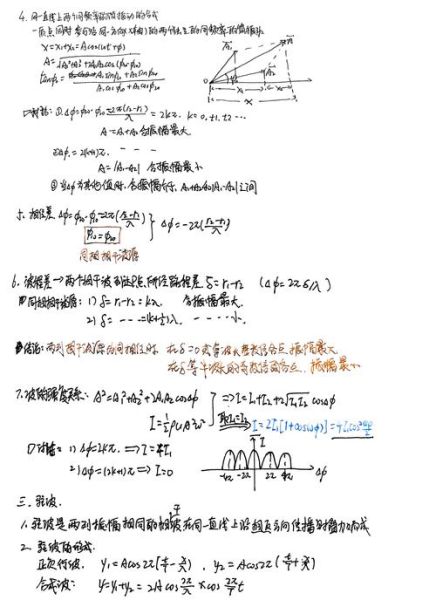 4. 同一直线上两个同频率简谐振动的合成
一质点同时参与沿同一方向(x轴)的两个独立的同频率的简谐振动
x=x₁+x₂=Acos(ωt+φ)
A=√(A₁²+A₂²+2A₁A₂cos(φ₂-φ₁))
tanφ= (A₁sinφ₁+A₂sinφ₂)/(A₁cosφ₁+A₂cosφ₂)
讨论: ① Δφ=φ₂₀-φ₁₀-2π(r₂-r₁)/λ=2kπ. k=0,±1,±2…
A=A₁+A₂ 合振幅最大
② Δφ=2(k+1)π. - - -
A=|A₁-A₂| 合振幅最小
③ 当Δφ为其他值时,合振幅介于 A₁+A₂和|A₁-A₂|之间
5. 相位差 Δφ=φ₂₀-φ₁₀-2π(r₂-r₁)/λ } Δφ=-2π(r₂-r₁)/λ
φ₁₀=φ₂₀
同相相干波源
6. 波程差→两个相干波到达点所经路程差 δ=r₁-r₂ (Δφ=2πδ/λ)
同相相干波源: 1) δ=r₁-r₂=kλ. 合振幅最大.
2) δ= - - =(k+½)λ. - - - - 小.
结论: 两列相干波源为同相位时, 在δ=0或等波长整数倍各点,振幅最大
在δ等半波长的奇数倍的各点,振幅最小
7. 波的强度关系: A²=A₁²+A₂²+2A₁A₂cosΔφ } ⇒ I=I₁+I₂+2√I₁I₂ cosΔφ
I=½ρuA²ω² 取I₁=I₂ I=2I₁[1+cos(Δφ)]=4I₁cos²Δφ/2
讨论: 1) Δφ=2kπ ⇒ I=4I₁
2) Δφ=(2k+1)π ⇒ I=0
I
-4π -2π 2π 4π Δφ
三. 驻波.
1. 驻波是两列振幅相同的相干波在同一直线上沿相反方向传播时叠加而成
2. 驻波的形成.
正交行波. y₁=Acos2π(t/T-x/λ), y₂=Acos2π(t/T+x/λ)
合成波: y=y₁+y₂=2Acos2π/λ x cos2π/T t